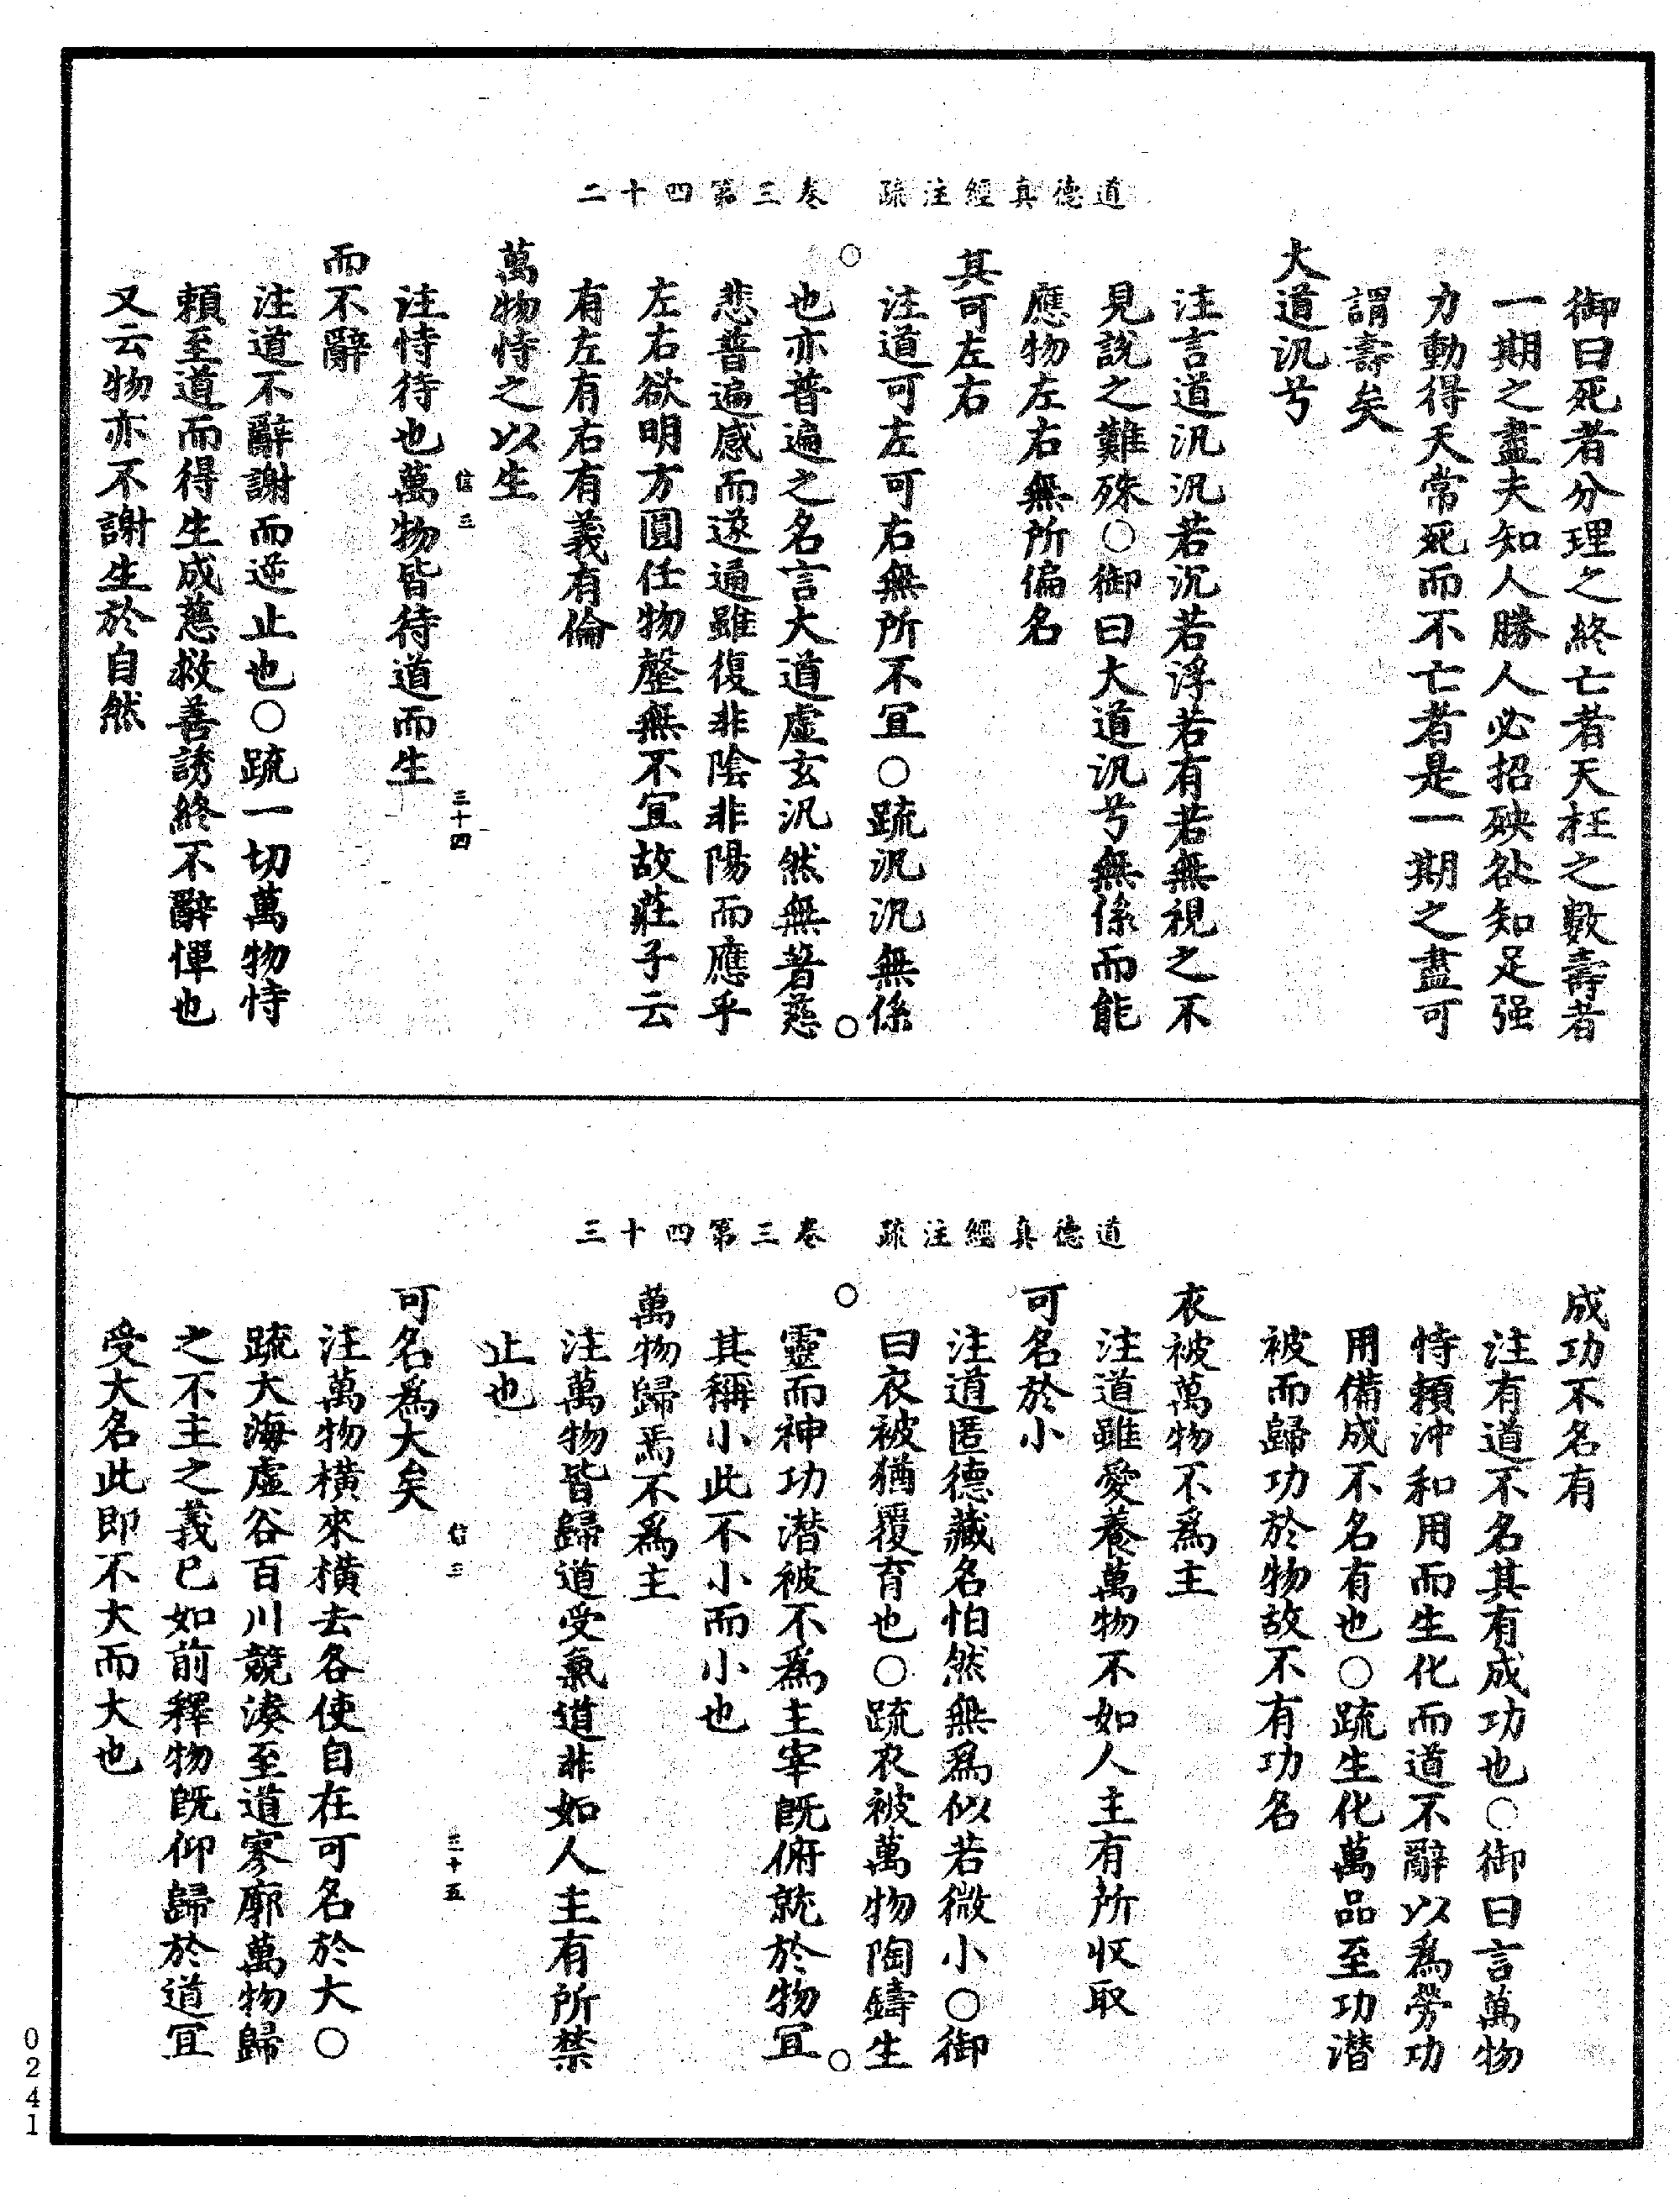 道德真經注疏　卷三第四十二
御曰死者分理之終亡者夭枉之數壽者
一期之盡夫知人勝人必招殃咎知足强
力動得天常死而不亡者是一期之盡可
謂壽矣
大道汎兮
注言道汎汎若沉若浮若有若無視之不
見說之難殊○御曰大道汎兮無係而能
應物左右無所偏名
其可左右
注道可左可右無所不宜○疏汎汎無係
也亦普遍之名言大道虛玄汎然無著慈
悲普遍感而遂通雖復非陰非陽而應乎
左右欲明方圓任物罄無不宜故莊子云
有左有右有義有倫
萬物恃之以生
信三
三十四
注恃待也萬物皆待道而生
而不辭
注道不辭謝而逆止也○疏一切萬物恃
賴至道而得生成慈救善誘終不辭憚也
又云物亦不謝生於自然
道德真經注疏　卷三第四十三
成功不名有
注有道不名其有成功也○御曰言萬物
恃賴沖和用而生化而道不辭以爲勞功
用備成不名有也○疏生化萬品至功潛
被而歸功於物故不有功名
衣被萬物不爲主
注道雖愛養萬物不如人主有所收取
可名於小
注道匿德藏名怕然無爲似若微小○御
曰衣被猶覆育也○疏衣被萬物陶鑄生
靈而神功潛被不爲主宰既俯就於物宜
其稱小此不小而小也
萬物歸焉不爲主
注萬物皆歸道受氣道非如人主有所禁
止也
信三
三十五
可名爲大矣
注萬物橫來橫去各使自在可名於大○
疏大海虛谷百川競湊至道寥廓萬物歸
之不主之義已如前釋物既仰歸於道宜
受大名此即不大而大也
0241